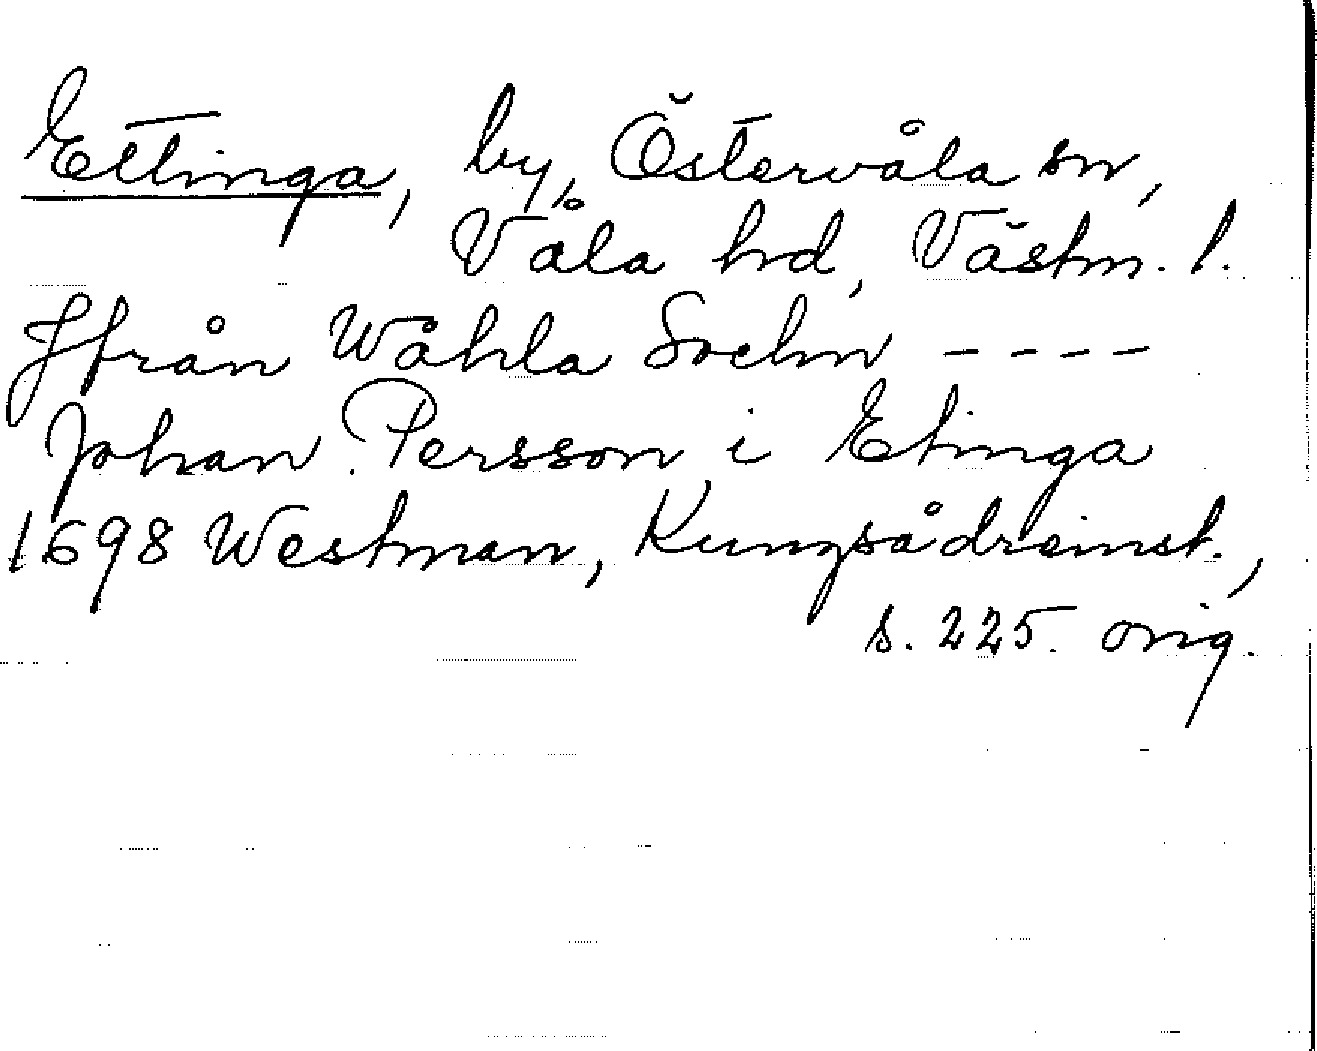 Ettinga, by, Östervåla sn,
Våla hd, Västm. l.
Ifrån Wåhla Sochn ----
Johan Persson i Etinga
1698 Westman, Kungsådreinst.,
s. 225. orig.